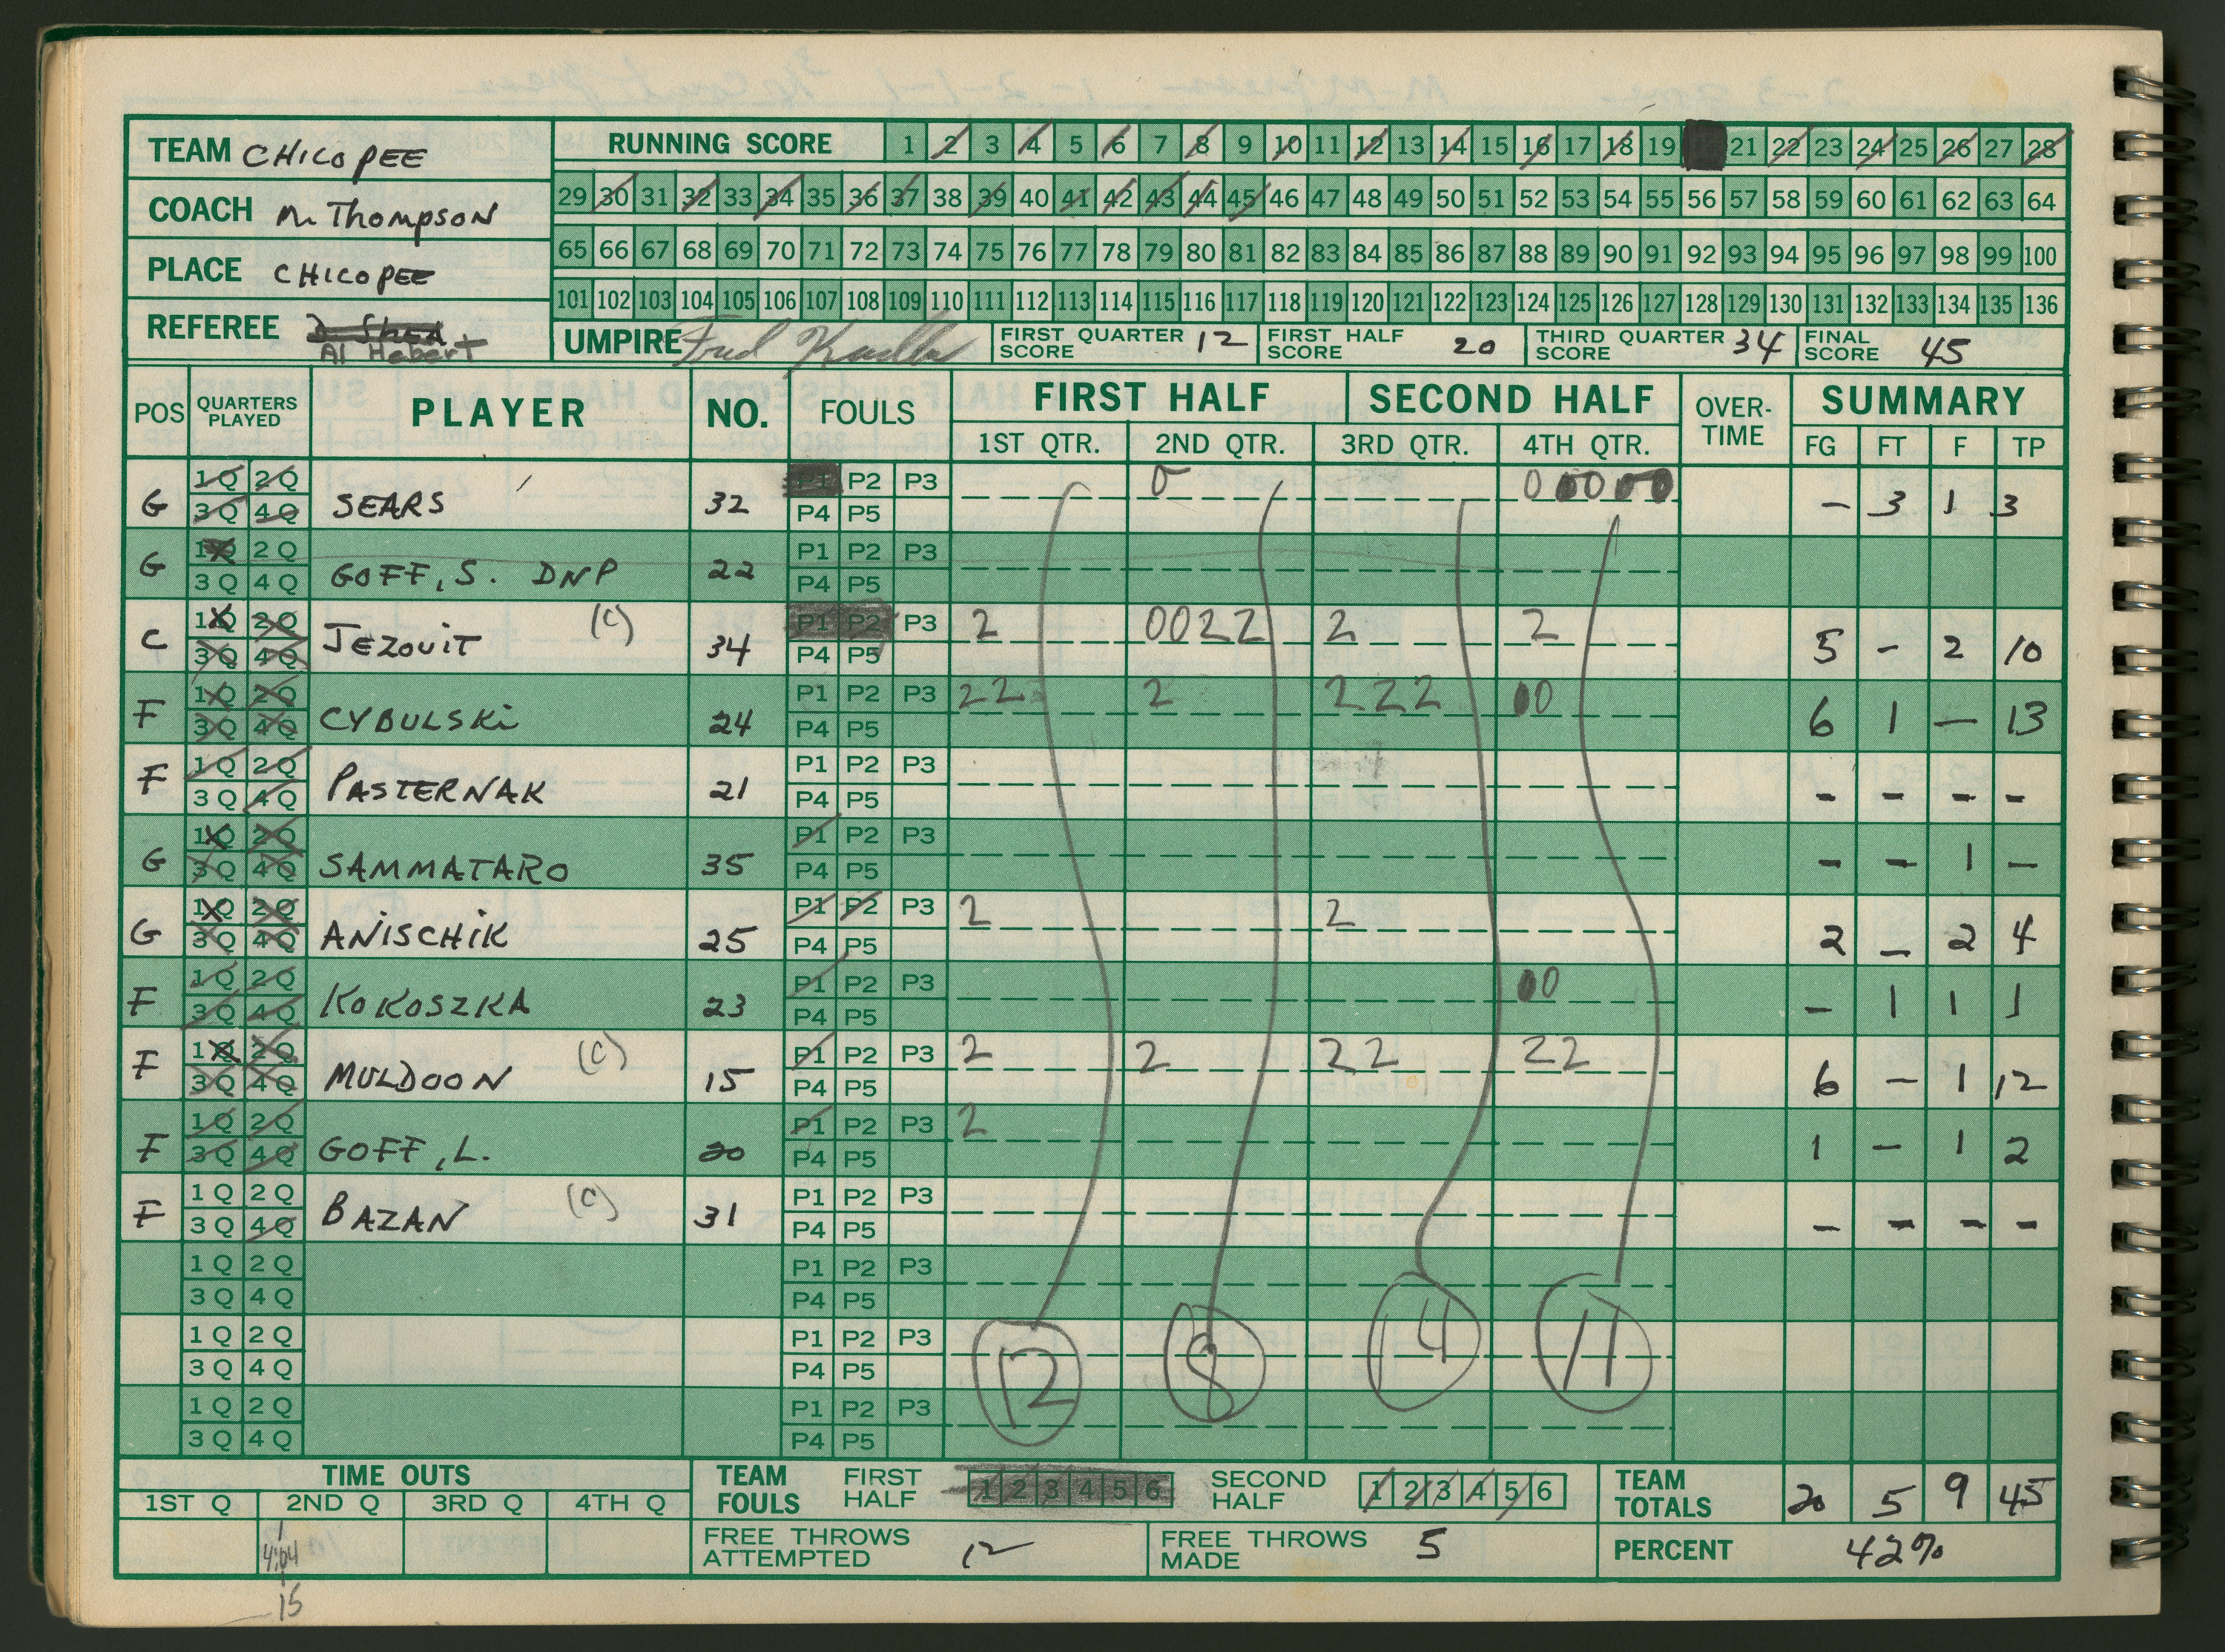 TEAM CHICOPEE
COACH M. THOMPSON
PLACE CHICOPEE
REFEREE D. SHEA
Al Hebert
RUNNING SCORE 1 2 3 4 5 6 7 8 9 10 11 12 13 14 15 16 17 18 19 21 22 23 24 25 26 27 28
29 30 31 32 33 34 35 36 37 38 39 40 41 42 43 44 45 46 47 48 49 50 51 52 53 54 55 56 57 58 59 60 61 62 63 64
65 66 67 68 69 70 71 72 73 74 75 76 77 78 79 80 81 82 83 84 85 86 87 88 89 90 91 92 93 94 95 96 97 98 99 100
101 102 103 104 105 106 107 108 109 110 111 112 113 114 115 116 117 118 119 120 121 122 123 124 125 126 127 128 129 130 131 132 133 134 135 136
UMPIRE Fred FIRST QUARTER SCORE 12 FIRST HALF SCORE 20 THIRD QUARTER SCORE 34 FINAL SCORE 45
POS QUARTERS PLAYED PLAYER NO. FOULS FIRST HALF SECOND HALF OVER-TIME SUMMARY
1ST QTR. 2ND QTR. 3RD QTR. 4TH QTR. FG FT F TP
1Q 2Q P1 P2 P3 0 0 0 0 0 0
G 3Q 4Q SEARS 32 P4 P5 - 3 1 3
1Q 2Q P1 P2 P3
G 3Q 4Q GOFF, S. DNP 22 P4 P5
1Q 2Q (C) P1 P2 P3 2 0022 2 2
C 3Q 4Q JEZOUIT 34 P4 P5 5 - 2 10
1Q 2Q P1 P2 P3 22 2 222 00
F 3Q 4Q CYBULSKI 24 P4 P5 6 1 - 13
1Q 2Q P1 P2 P3
F 3Q 4Q PASTERNAK 21 P4 P5 - - - -
1Q 2Q P1 P2 P3
G 3Q 4Q SAMMATARO 35 P4 P5 - - 1 -
1Q 2Q P1 P2 P3 2 2
G 3Q 4Q ANISCHIK 25 P4 P5 2 - 2 4
1Q 2Q P1 P2 P3 00
F 3Q 4Q KOKOSZKA 23 P4 P5 - 1 1 1
1Q 2Q (C) P1 P2 P3 2 2 22 22
F 3Q 4Q MULDOON 15 P4 P5 6 - 1 12
1Q 2Q P1 P2 P3 2
F 3Q 4Q GOFF, L. 20 P4 P5 1 - 1 2
1Q 2Q (C) P1 P2 P3
F 3Q 4Q BAZAN 31 P4 P5 - - - -
1Q 2Q P1 P2 P3
3Q 4Q P4 P5
1Q 2Q P1 P2 P3
3Q 4Q P4 P5 12 8 14 11
1Q 2Q P1 P2 P3
3Q 4Q P4 P5
TIME OUTS TEAM FOULS FIRST HALF 1 2 3 4 5 6 SECOND HALF 1 2 3 4 5 6 TEAM TOTALS 20 5 9 45
1ST Q 2ND Q 3RD Q 4TH Q
4:04 FREE THROWS ATTEMPTED 12 FREE THROWS MADE 5 PERCENT 42%
15